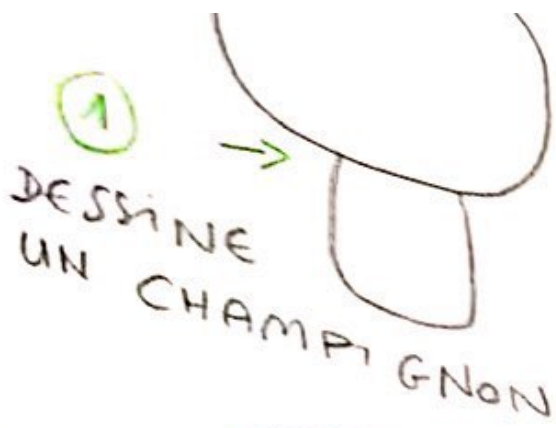 1
DESSINE
UN CHAMPIGNON